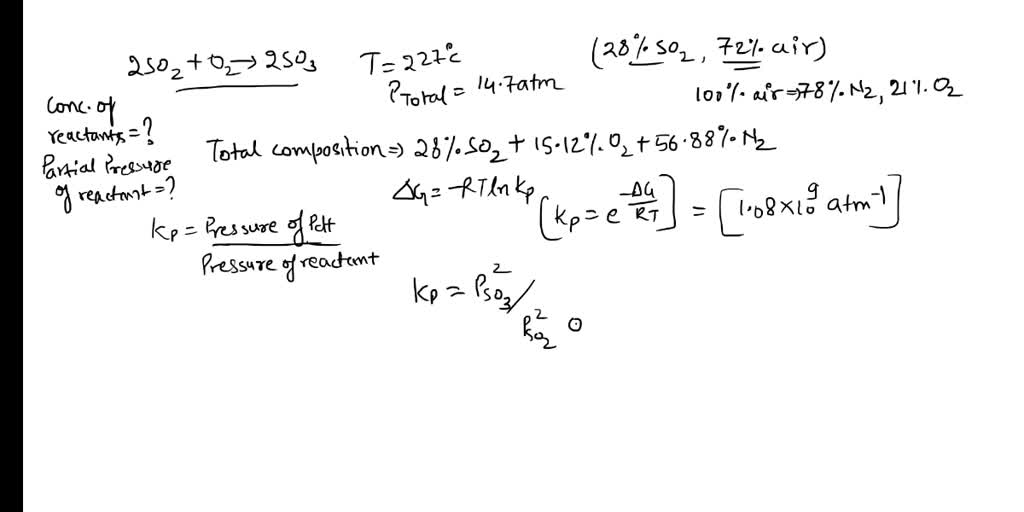 2SO₂ + O₂ → 2SO₃
T = 227°C
P_Total = 14.7atm
(28% SO₂, 72% air)
100% air ⇒ 78% N₂, 21% O₂
Conc. of
reactants = ?
Partial Pressure
of reactant = ?
Total composition ⇒ 28% SO₂ + 15.12% O₂ + 56.88% N₂
ΔG = -RT ln Kp
(Kp = e^(-ΔG/RT)] = [1.08 × 10⁹ atm⁻¹]
Kp = Pressure of Pdt
Pressure of reactant
Kp = P²SO₃ /
P²SO₂ O